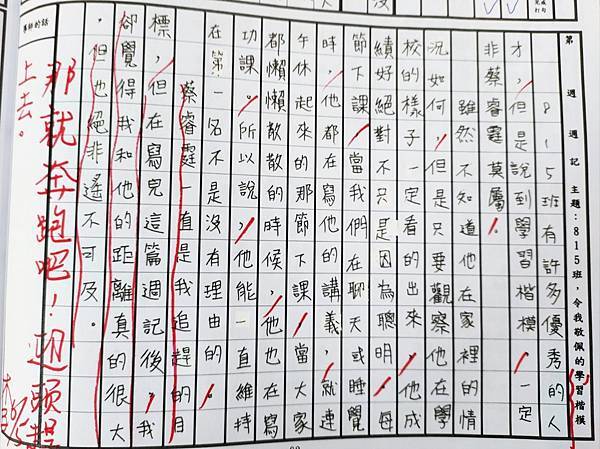 第 週 週記 主題：815班，令我敬佩的學習楷模
815班有許多優秀的人
才，但是說到學習楷模，一定
非蔡睿霆莫屬。
雖然不知道他在家裡的情
況如何，但是只要觀察他在學
校的樣子，一定看的出來，他成
績好絕對不只是因為聰明，每
節下課，當我們在聊天或睡覺
時，他都在寫他的講義，就連
午休起來的那節下課，當大家
都懶懶散散的時候，他也在寫
功課。所以說，他能一直維持
在第一名不是沒有理由的。
蔡睿霆一直是我追趕的目
標，但在寫完這篇週記後，我
卻覺得我和他的距離真的很大
，但也絕非遙不可及。
導師的話
那就奔跑吧！迎頭趕
上去。